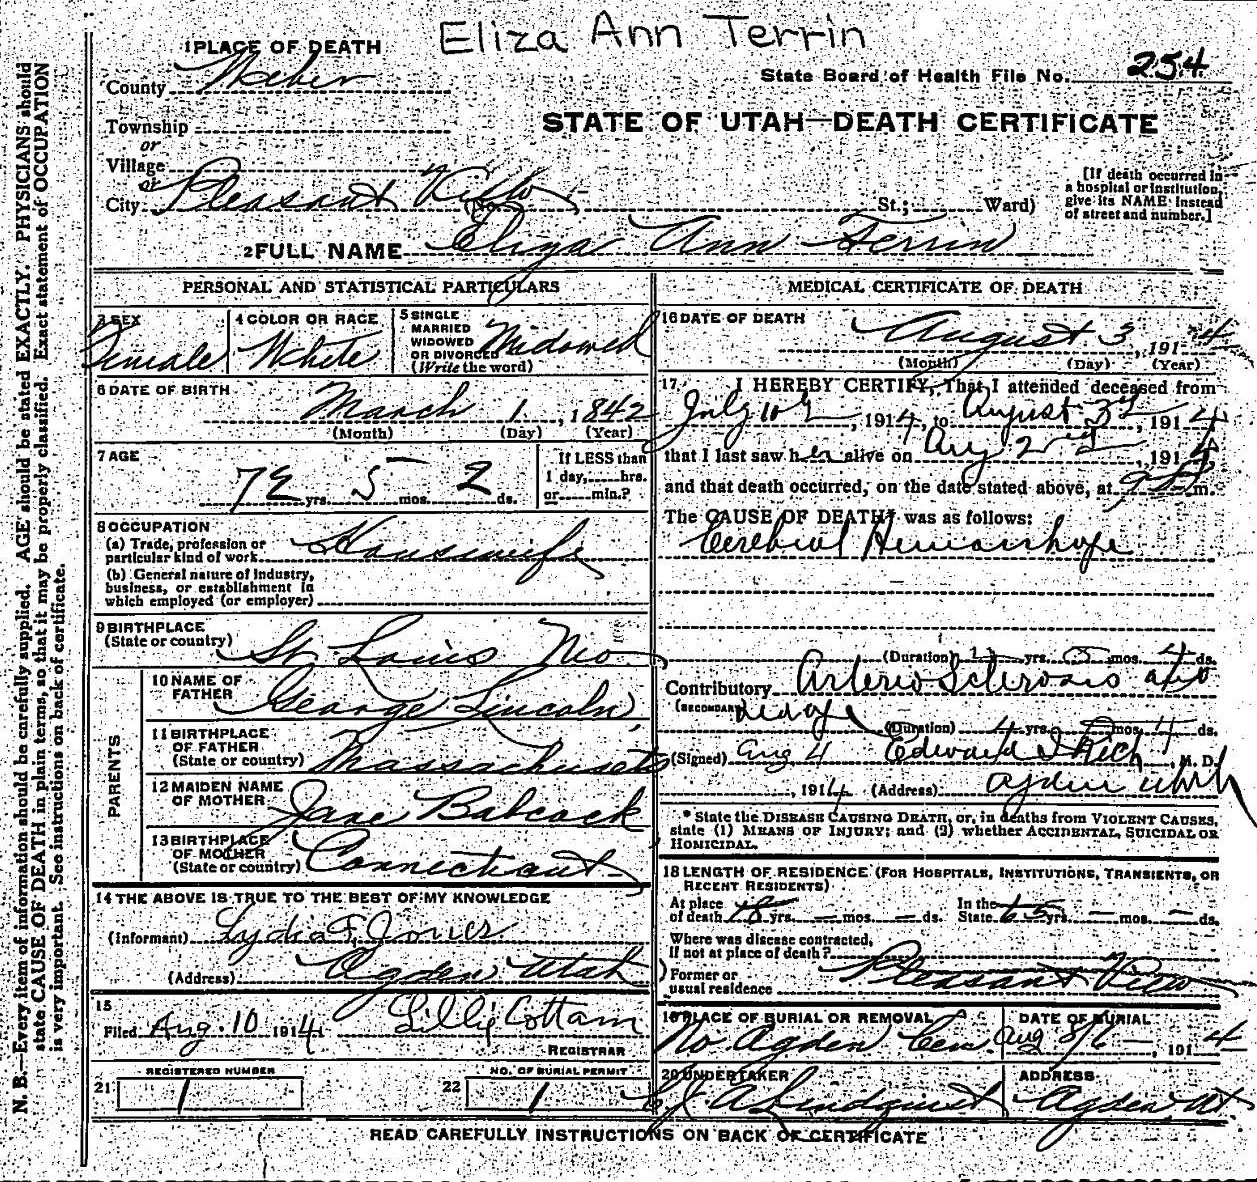 Eliza Ann Terrin
1 PLACE OF DEATH
County Weber
State Board of Health File No. 254
Township
or
Village
or
STATE OF UTAH—DEATH CERTIFICATE
City Pleasant View St.; Ward)
[If death occurred in
a hospital or institution,
give its NAME instead
of street and number.]
2 FULL NAME Eliza Ann Terrin
PERSONAL AND STATISTICAL PARTICULARS
3 SEX
Female
4 COLOR OR RACE
White
5 SINGLE
MARRIED
WIDOWED
OR DIVORCED
(Write the word)
Widowed
6 DATE OF BIRTH
March 1, 1842
(Month) (Day) (Year)
7 AGE
72 yrs. 5 mos. 2 ds.
If LESS than
1 day, hrs.
or min.?
8 OCCUPATION
(a) Trade, profession or
particular kind of work Housewife
(b) General nature of Industry,
business, or establishment in
which employed (or employer)
9 BIRTHPLACE
(State or country) St Louis Mo
PARENTS
10 NAME OF
FATHER George Lincoln
11 BIRTHPLACE
OF FATHER
(State or country) Massachusets
12 MAIDEN NAME
OF MOTHER Jane Babcock
13 BIRTHPLACE
OF MOTHER
(State or country) Connecticut
14 THE ABOVE IS TRUE TO THE BEST OF MY KNOWLEDGE
(Informant) Lydia F. Jones
(Address) Ogden Utah
15
Filed Aug. 10 1914 Lilly Cottam
REGISTRAR
REGISTERED NUMBER
21 1
NO. OF BURIAL PERMIT
22 1
MEDICAL CERTIFICATE OF DEATH
16 DATE OF DEATH
August 3, 1914
(Month) (Day) (Year)
17 I HEREBY CERTIFY, That I attended deceased from
July 10, 1914, to August 3rd, 1914
that I last saw her alive on Aug 2nd, 1914
and that death occurred, on the date stated above, at m.
The CAUSE OF DEATH* was as follows:
Cerebral Hemorrhage
(Duration) yrs. mos. 4 ds.
Contributory Arterio Sclerosis and
(SECONDARY) old age (Duration) 4 yrs. mos. ds.
(Signed) Aug 4 Edward I Rich, M. D.
, 1914 (Address) Ogden Utah
* State the DISEASE CAUSING DEATH, or, in deaths from VIOLENT CAUSES,
state (1) MEANS OF INJURY; and (2) whether ACCIDENTAL, SUICIDAL OR
HOMICIDAL.
18 LENGTH OF RESIDENCE (FOR HOSPITALS, INSTITUTIONS, TRANSIENTS, OR
RECENT RESIDENTS)
At place
of death 18 yrs. — mos. — ds.
In the
State 65 yrs. — mos. — ds.
Where was disease contracted,
If not at place of death?
Former or
usual residence Pleasant View
19 PLACE OF BURIAL OR REMOVAL
No Ogden Cem.
DATE OF BURIAL
Aug 8/6 —, 1914
20 UNDERTAKER
A Lindquist
ADDRESS
Ogden Ut.
READ CAREFULLY INSTRUCTIONS ON BACK OF CERTIFICATE
N. B.—Every item of information should be carefully supplied. AGE should be stated EXACTLY. PHYSICIANS should
state CAUSE OF DEATH in plain terms, so that it may be properly classified. Exact statement of OCCUPATION
is very important. See instructions on back of certificate.